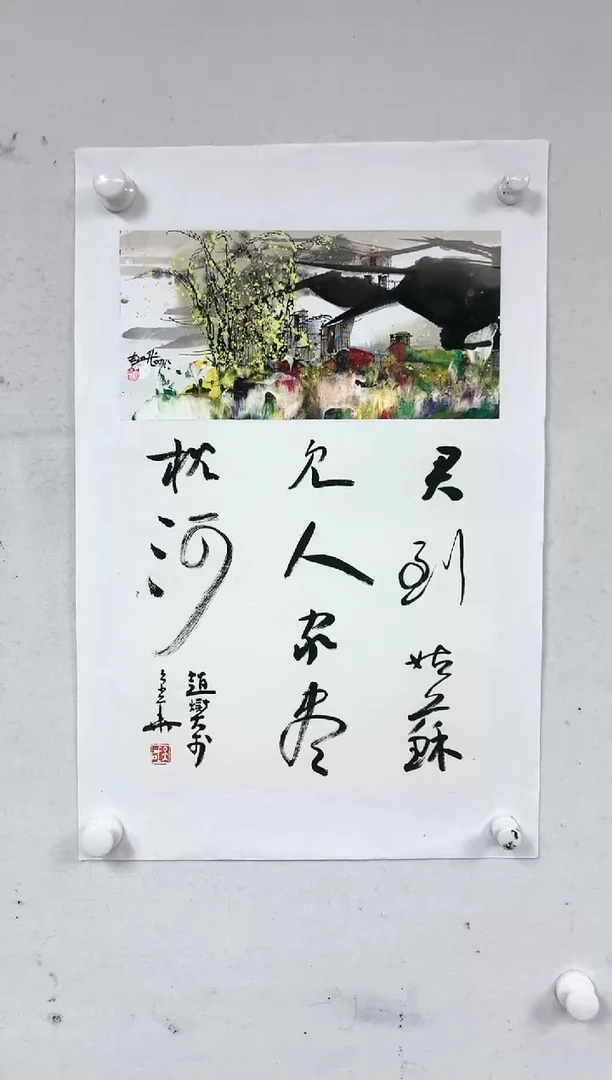 君到姑蘇
見人家盡
枕河